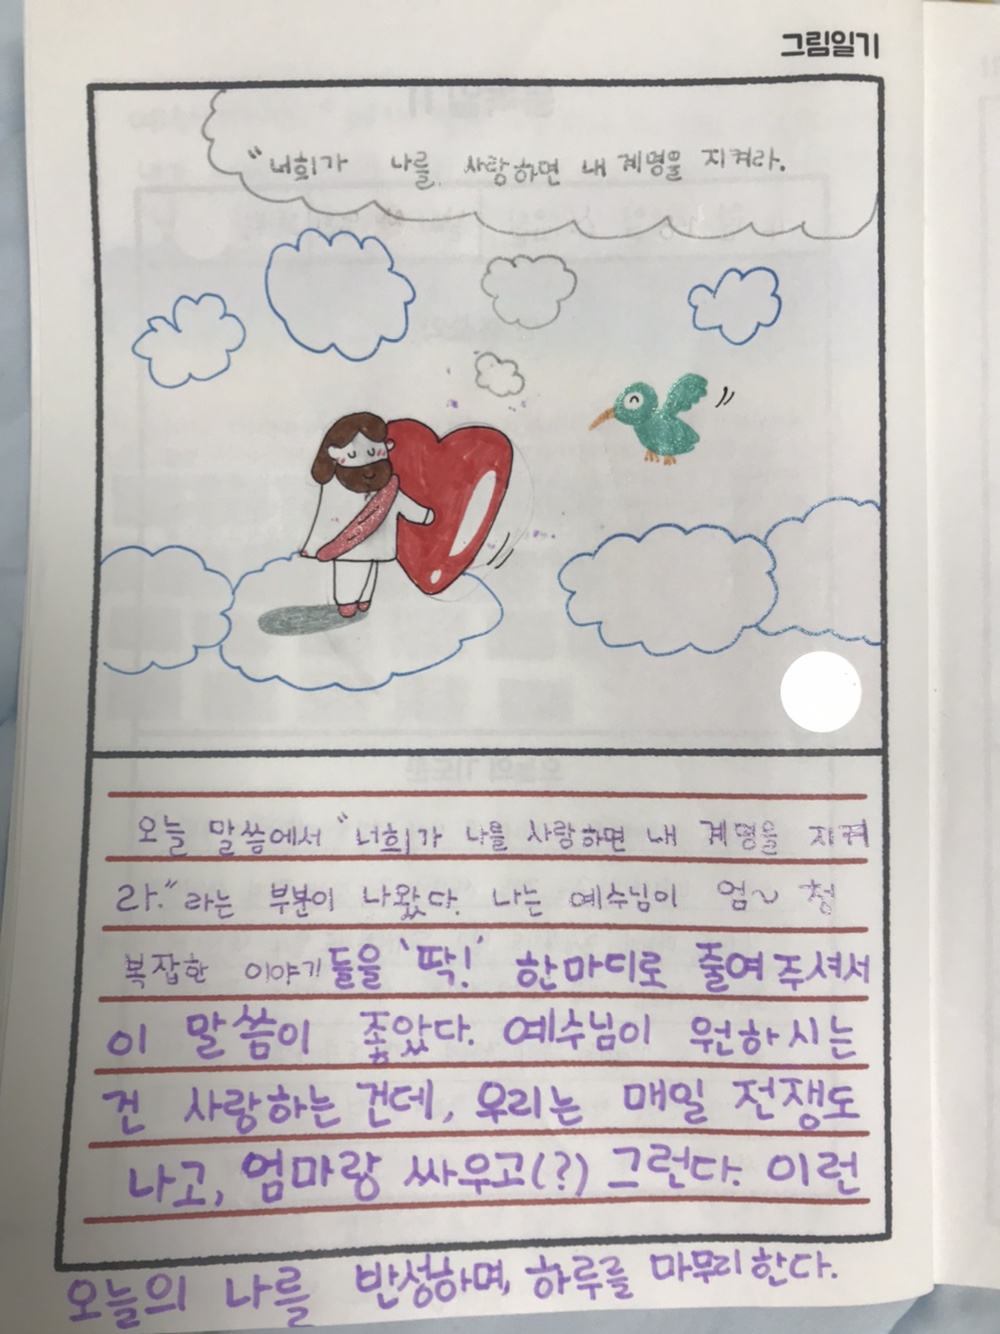 그림일기
"너희가 나를 사랑하면 내 계명을 지켜라.
오늘 말씀에서 "너희가 나를 사랑하면 내 계명을 지켜
라."라는 부분이 나왔다. 나는 예수님이 엄~청
복잡한 이야기들을 '딱!' 한마디로 줄여주셔서
이 말씀이 좋았다. 예수님이 원하시는
건 사랑하는 건데, 우리는 매일 전쟁도
나고, 엄마랑 싸우고(?) 그런다. 이런
오늘의 나를 반성하며, 하루를 마무리한다.